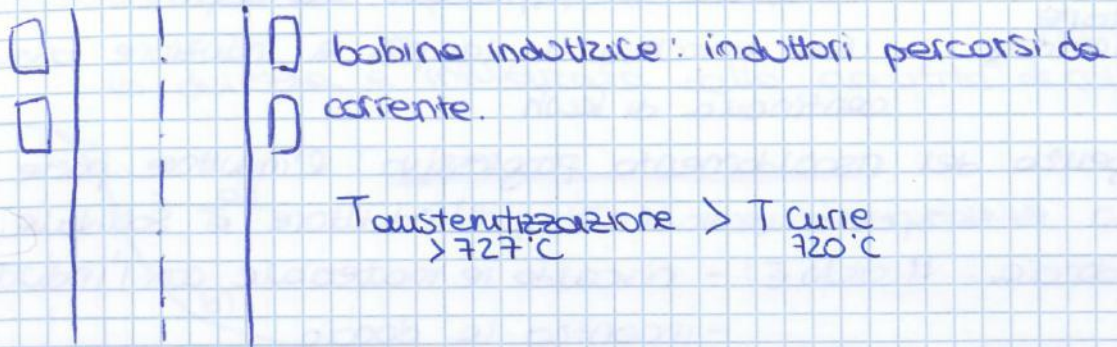 bobine induttrice: induttori percorsi da
corrente.
Taustenitizzazione > T Curie
>727°C 720°C